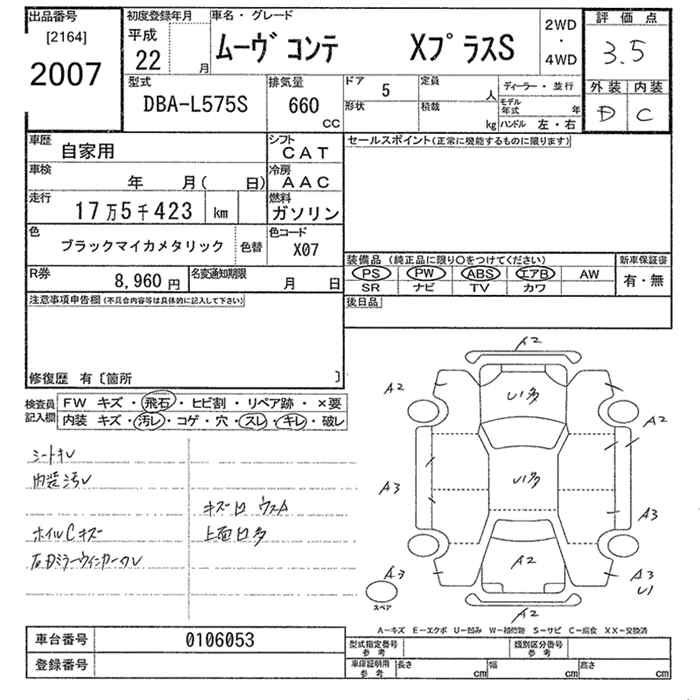 出品番号
[2164]
2007
初度登録年月
平成
22
月
車名・グレード
ムーヴ コンテ XプラスS
2WD
・
4WD
評価点
3.5
外装 内装
D C
型式
DBA-L575S
排気量
660
CC
ドア 5
形状
定員 人
積載 kg
ディーラー・並行
モデル年式 年
ハンドル 左・右
車歴
自家用
シフト
CAT
車検
年 月( 日)
冷房
AAC
走行
17万5千423 km
燃料
ガソリン
色
ブラックマイカメタリック
色替
色コード
X07
R券
8,960円
名変通知期限
月 日
セールスポイント(正常に機能するものに限ります)
装備品(純正品に限り○をつけてください)
新車保証書
PS PW ABS エアB AW
有・無
SR ナビ TV カワ
後日品
注意事項申告欄(不具合内容等は具体的に記入して下さい)
修復歴 有〔箇所 〕
検査員記入欄
FW キズ・飛石・ヒビ割・リペア跡・×要
内装 キズ・汚レ・コゲ・穴・スレ・キレ・破レ
シートキレ
内装汚レ
ホイルCキズ
キズ凹 ウスA
上面凹多
A2
A2
U1多
A2
A3
U1多
A3
A2
A3
A3
U1
A2
スペア
A-キズ E-エクボ U-凹み W-補修跡 S-サビ C-腐食 XX-交換済
車台番号
0106053
登録番号
型式指定番号
参考
類別区分番号
参考
車庫証明用
参考
長さ cm
幅 cm
高さ cm